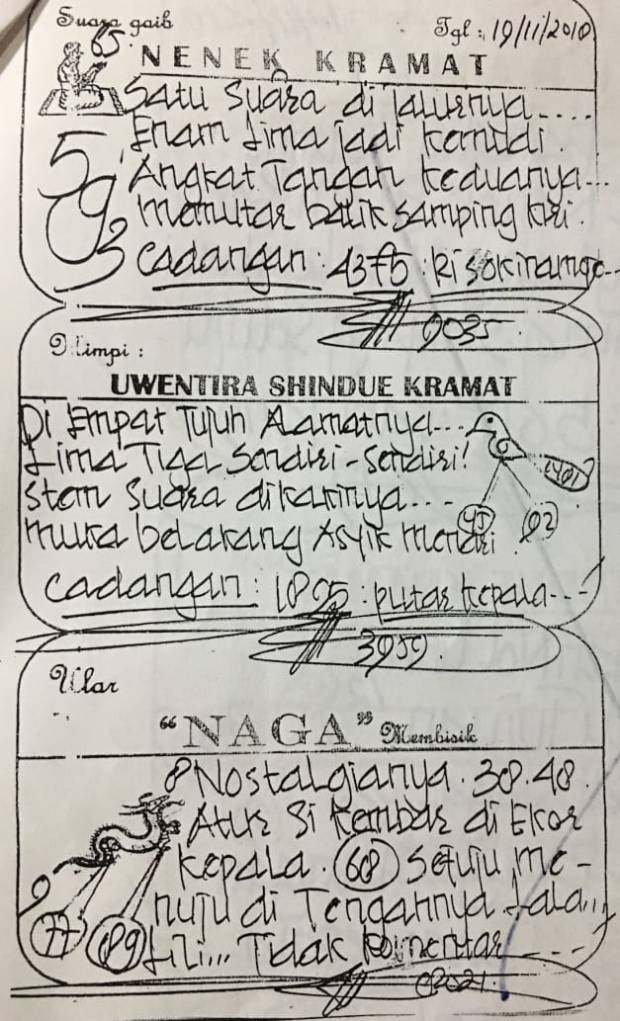 Suara gaib
Tgl : 19/11/2018
65
NENEK KRAMAT
Satu Suara di jalurnya....
Enam Lima jadi kemudi.
Angkat Tangan keduanya...
memutar balik samping kiri.
5
9
3
cadangan : 4375 : ki sokinamgo...
9035
Mimpi :
UWENTIRA SHINDUE KRAMAT
Di Empat Tujuh Alamatnya....
Lima Tiga Sendiri-sendiri!
stem Suara dikakinya....
muka belakang Asyik menari
45
02
cadangan : 1825 : putar kepala...
3959.
Ular
“NAGA” Membisik
8 Nostalgianya. 38.48.
Atur Si kembar di Ekor
kepala. 68 setuju me-
nuju di Tengahnya Lala...
Lili... Tidak komentar
9
77
89
8221.